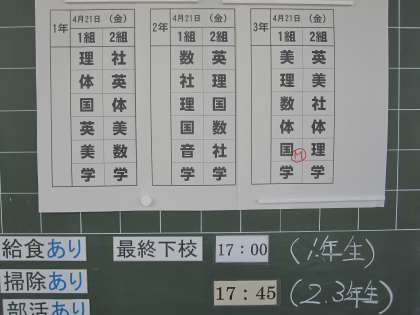 1年 4月21日 (金)
1組 2組
理 社
体 英
国 体
英 美
美 数
学 学
2年 4月21日 (金)
1組 2組
数 英
社 理
理 国
国 数
音 社
学 学
3年 4月21日 (金)
1組 2組
美 英
理 美
数 社
体 体
国 M 理
学 学
給食あり 最終下校 17:00 (1年生)
掃除あり
17:45 (2.3年生)
部活あり